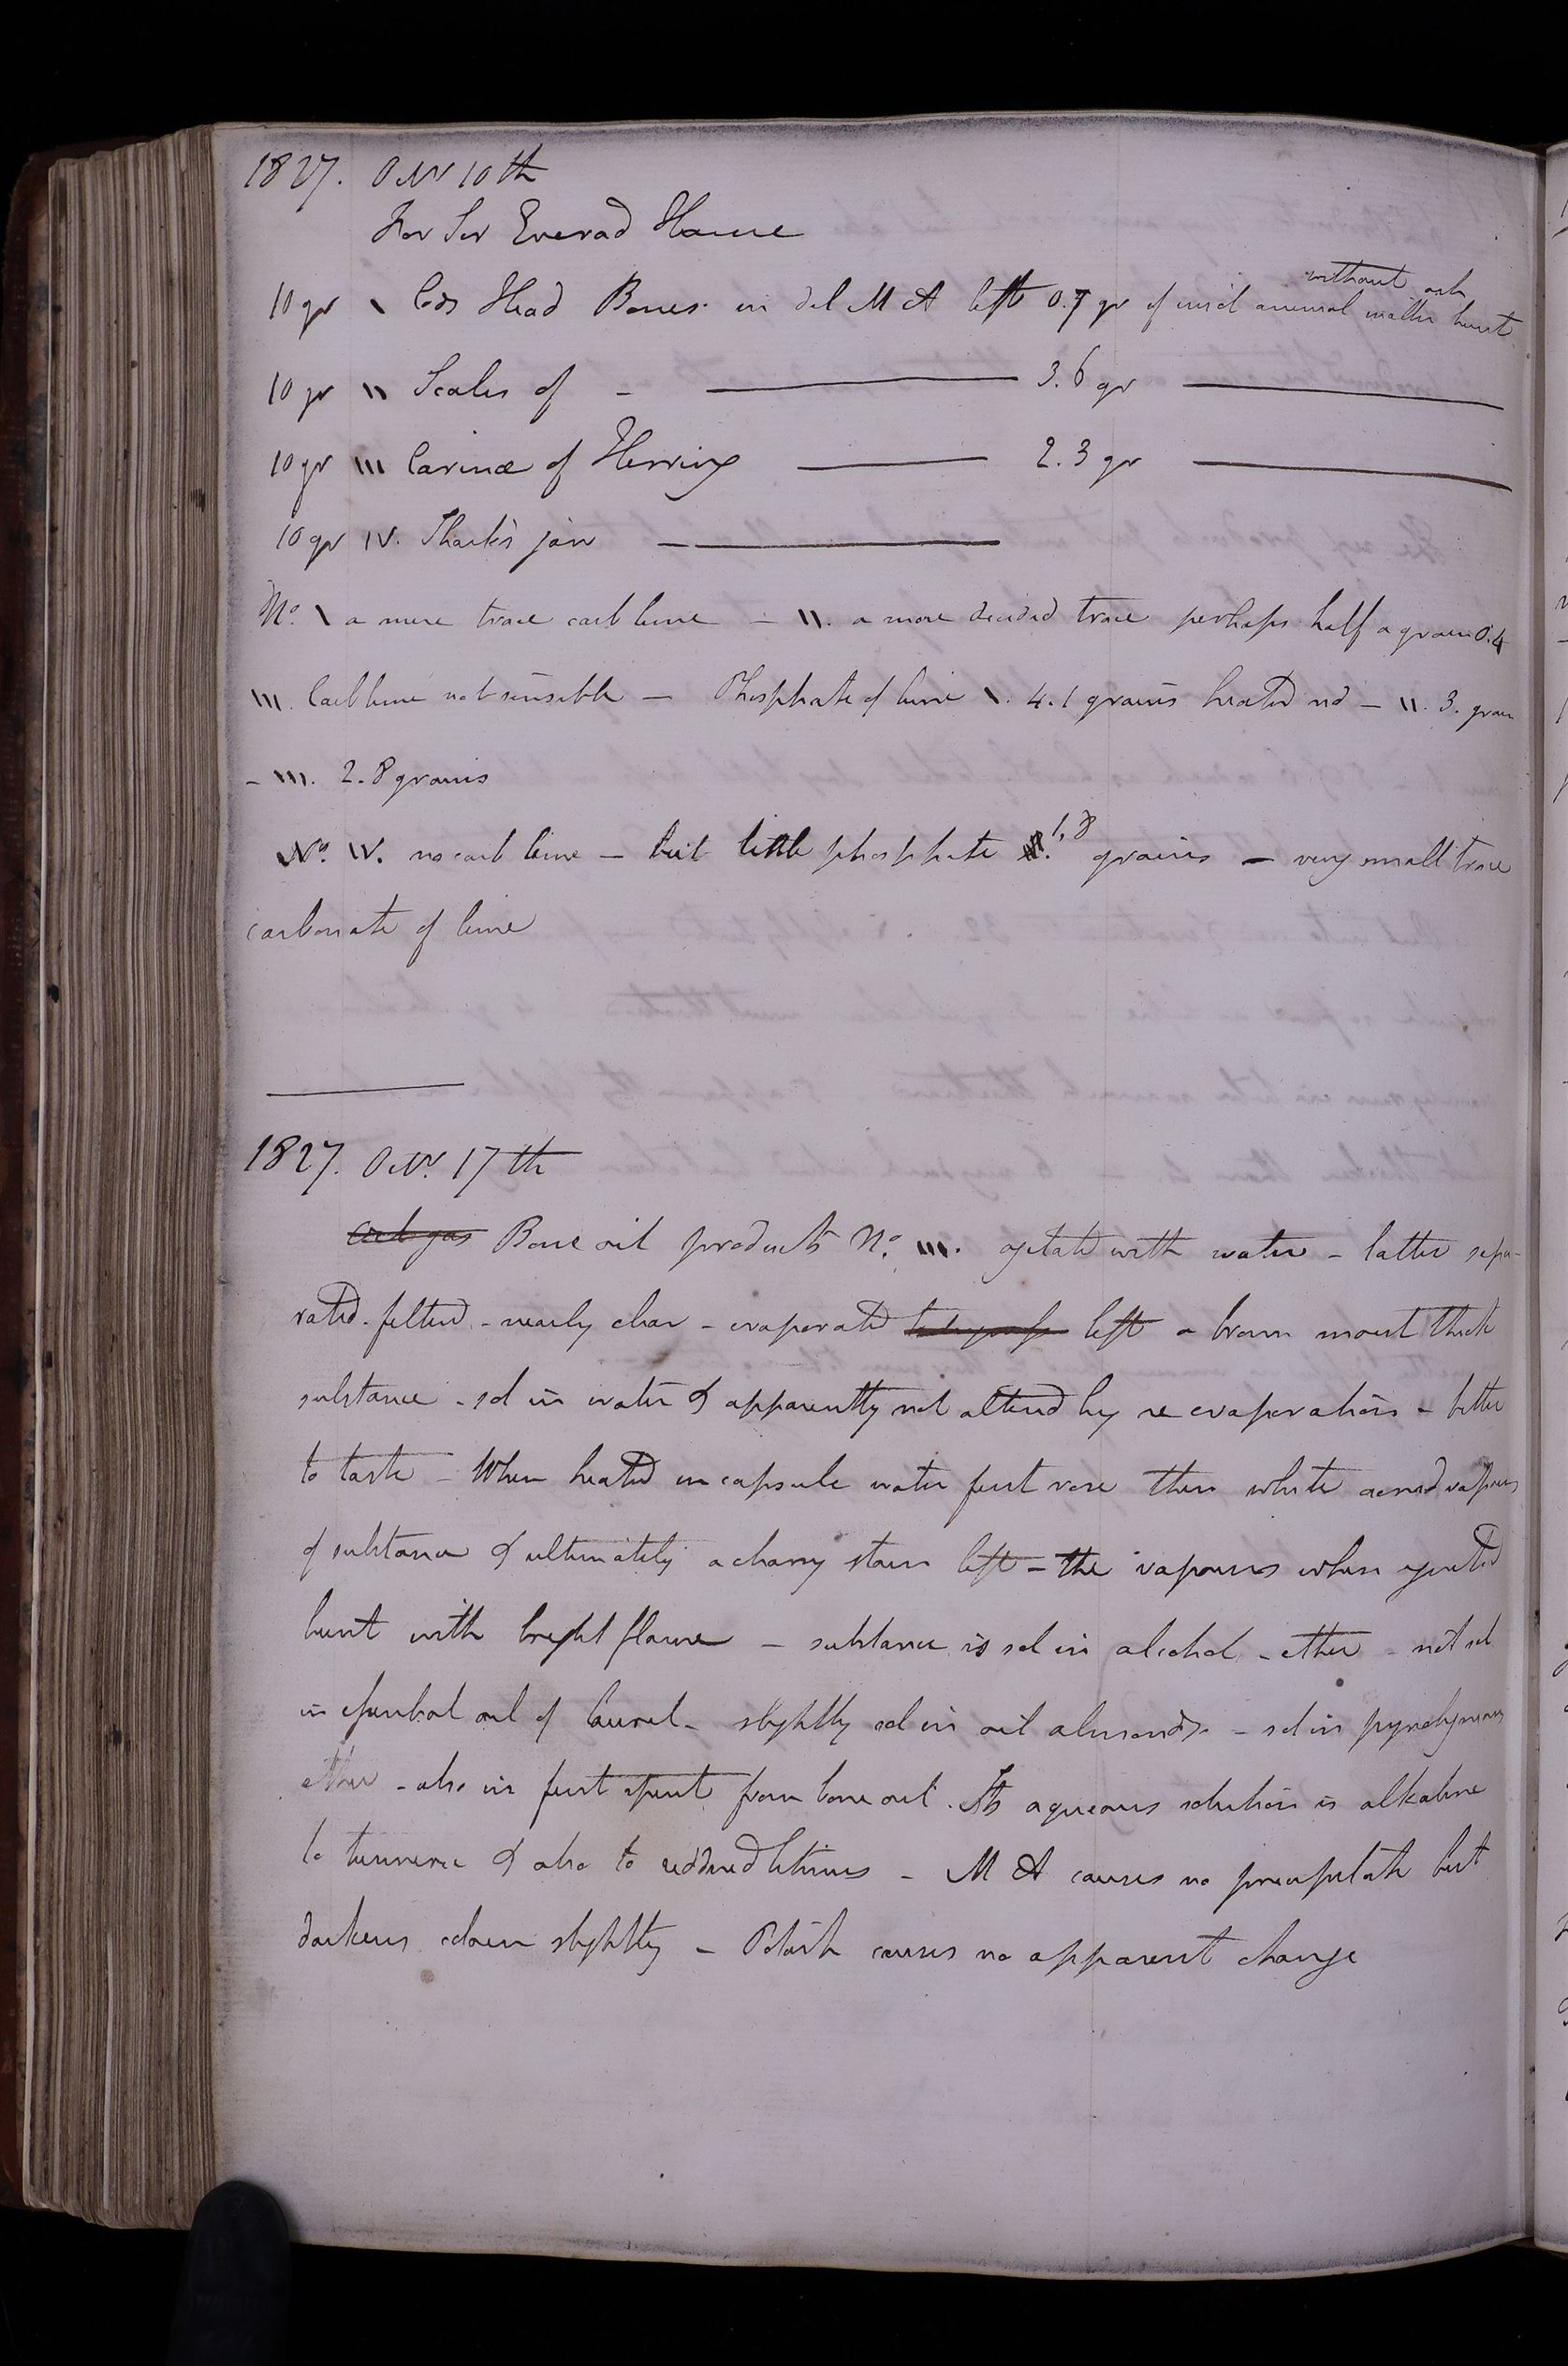 1827. Octr 10th
For Sir Everad Home
10 gr \ Cods Head Bones in dil M A left 0.7 gr of animal matter burnt without ash
10 gr \\ Scales of - ——— 3.6 gr ———
10 gr \\\ Carinæ of Herring ——— 2.3 gr ———
10 gr IV. Sharks jaw ———
No. \ a mere trace carb lime - \\. a more decided trace perhaps half a grain 0.4
\\\. Carb lime not sensible - Phosphate of lime \. 4.1 grains heated red - \\. 3. grain
- \\\. 2.8 grains
No. IV. no carb lime - but little phosphate 1,8 grains - very small trace
carbonate of lime
1827. Octr. 17th
Bone oil products No. \\\. agitated with water - latter sepa-
rated - filtered - nearly clear - evaporated left a brown moist thick
substance - sol in water & apparently not altered by re evaporation - bitter
to taste - When heated in capsule water first rose then white acrid vapours
of substance & ultimately a charry stain left - the vapours when ignited
burnt with bright flame - substance is sol in alcohol - ether - not sol
in essential oil of laurel - slightly sol in oil almonds - sol in pyroligneous
ether - also in first spirit from bone oil. Its aqueous solution is alkaline
to turmeric & also to reddened litmus - M A causes no precipitate but
darkens colour slightly - Potash causes no apparent change